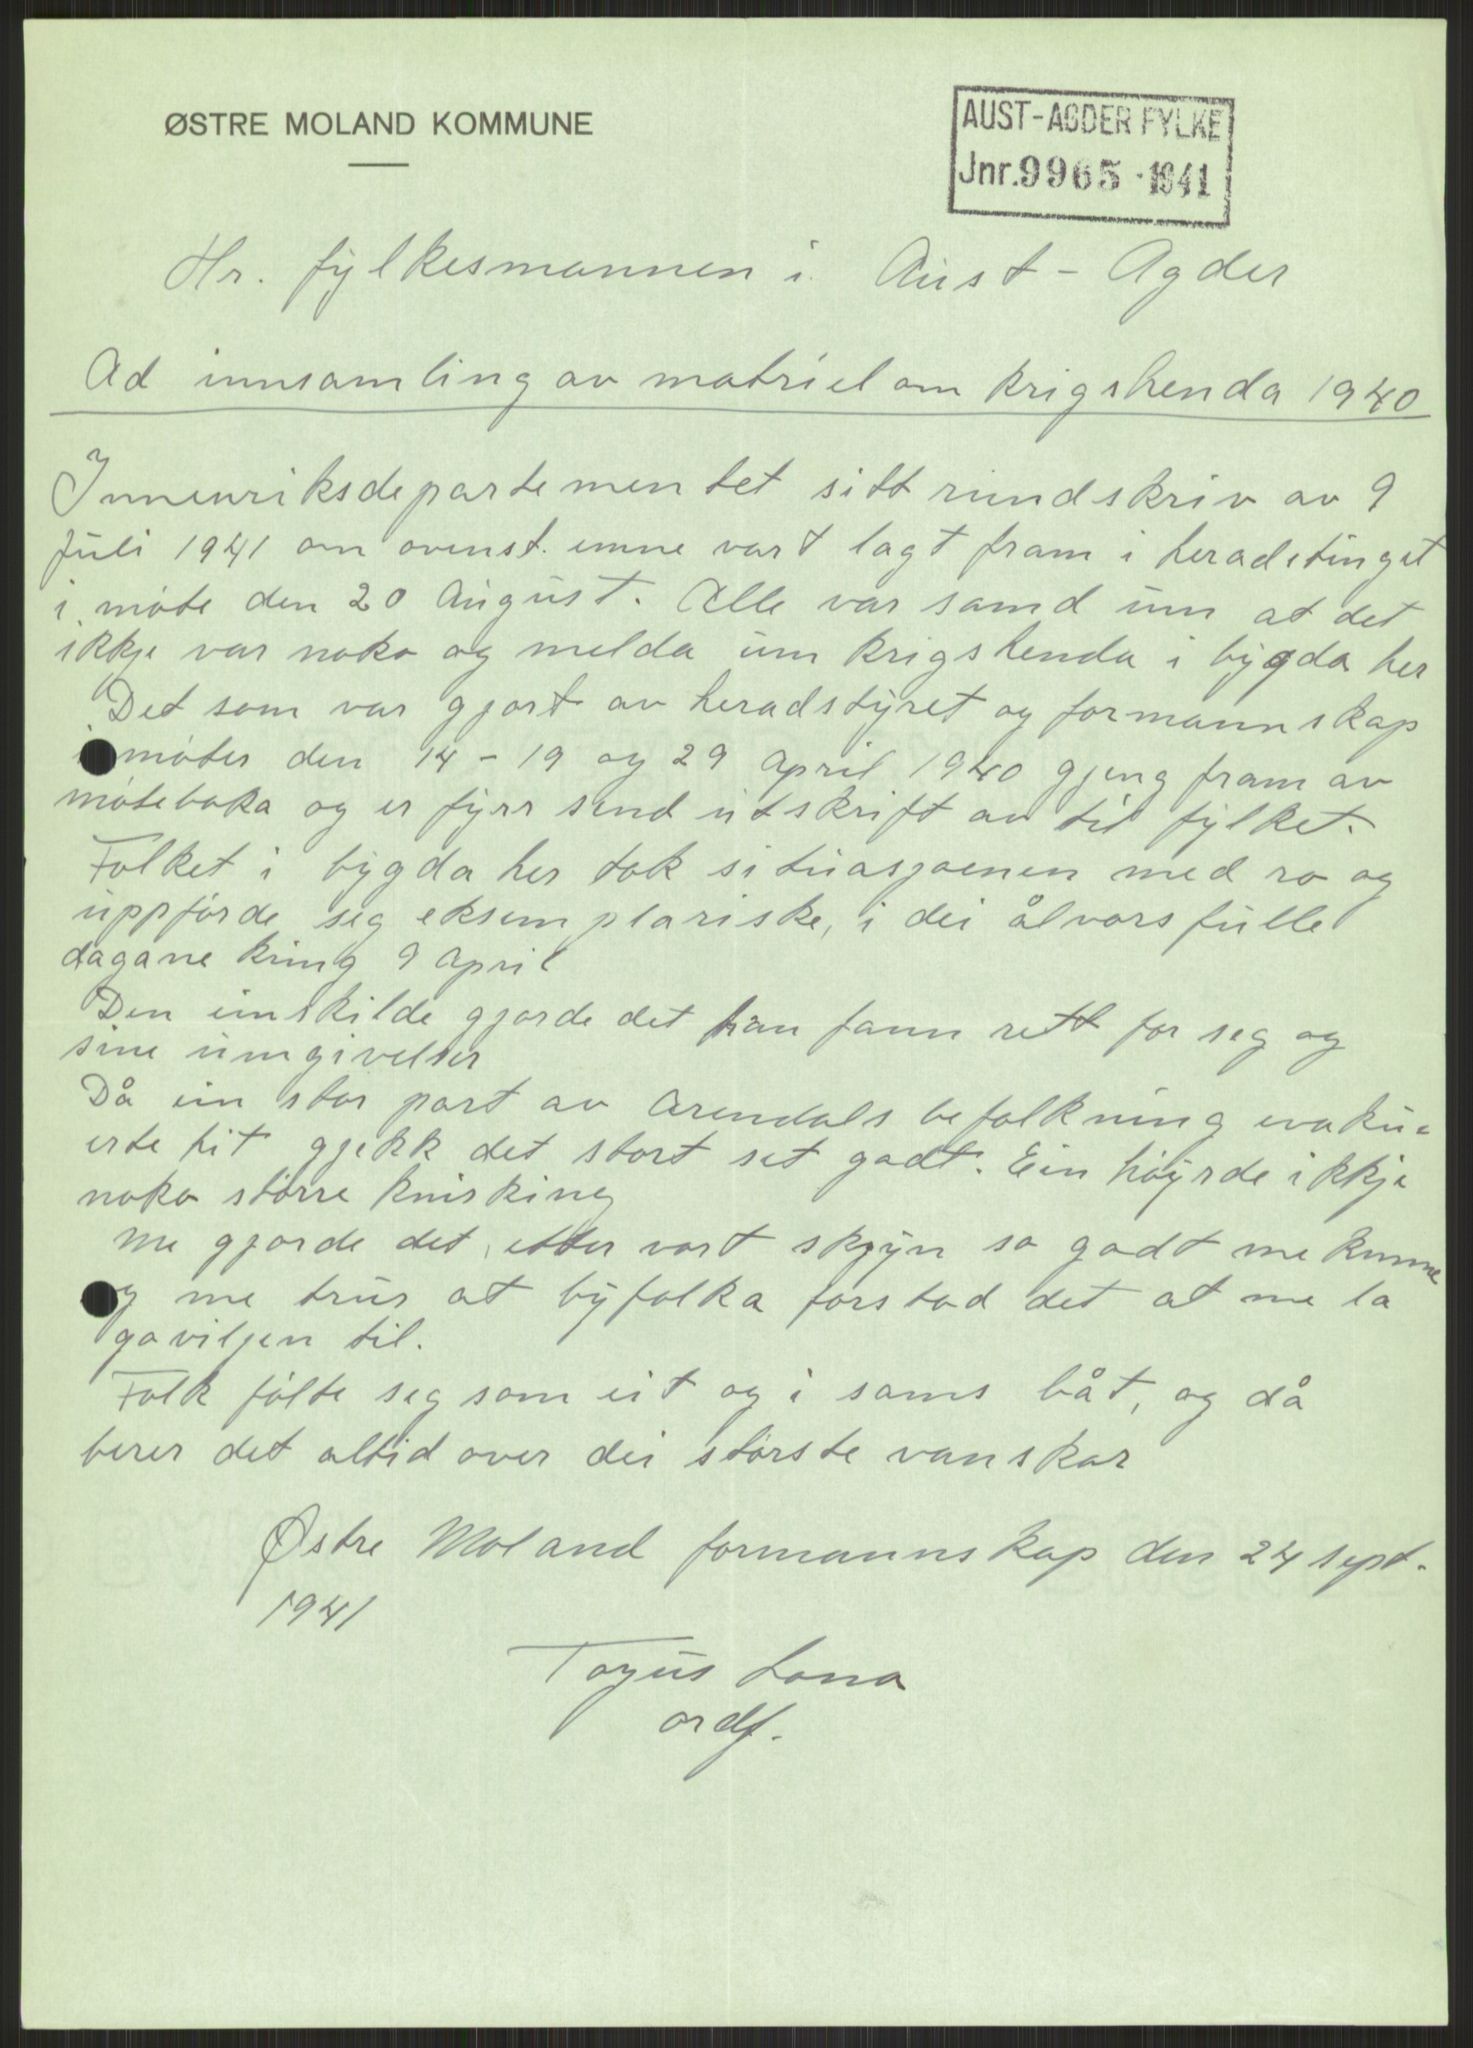 ØSTRE MOLAND KOMMUNE
AUST-AGDER FYLKE
Jnr. 9965 · 1941
Hr. fylkesmannen i Aust-Agder
Ad innsamling av matriel om krigshenda 1940
Innenriksdepartementet sitt rundskriv av 9
juli 1941 om ovenst. emne vart lagt fram i heradstinget
i møte den 20 August. Alle var samd um at det
ikkje var noko og melda um krigshenda i bygda her
Det som var gjort av heradstyret og formannskap
i møter den 14 - 19 og 29 April 1940 gjeng fram av
møteboka og er fyrr send utskrift av til fylket.
Folket i bygda her tok situasjoenen med ro og
uppførde seg eksemplariske, i dei ålvorsfulle
dagane kring 9 April
Den einskilde gjorde det han fann rett for seg og
sine umgivelser
Då ein stor part av Arendals befolkning evaku-
erte hit gjekk det stort set godt. Ein høyrde ikkje
noko større knisking
Me gjorde det, etter vort skjyn so godt me kunne
og me trur at byfolka forstod det at me la
goviljen til.
Folk følte seg som eit og i sams båt, og då
berer det altid over dei største vanskar
Østre Moland formannskap den 24 sept.
1941
Torjus Lona
ordf.